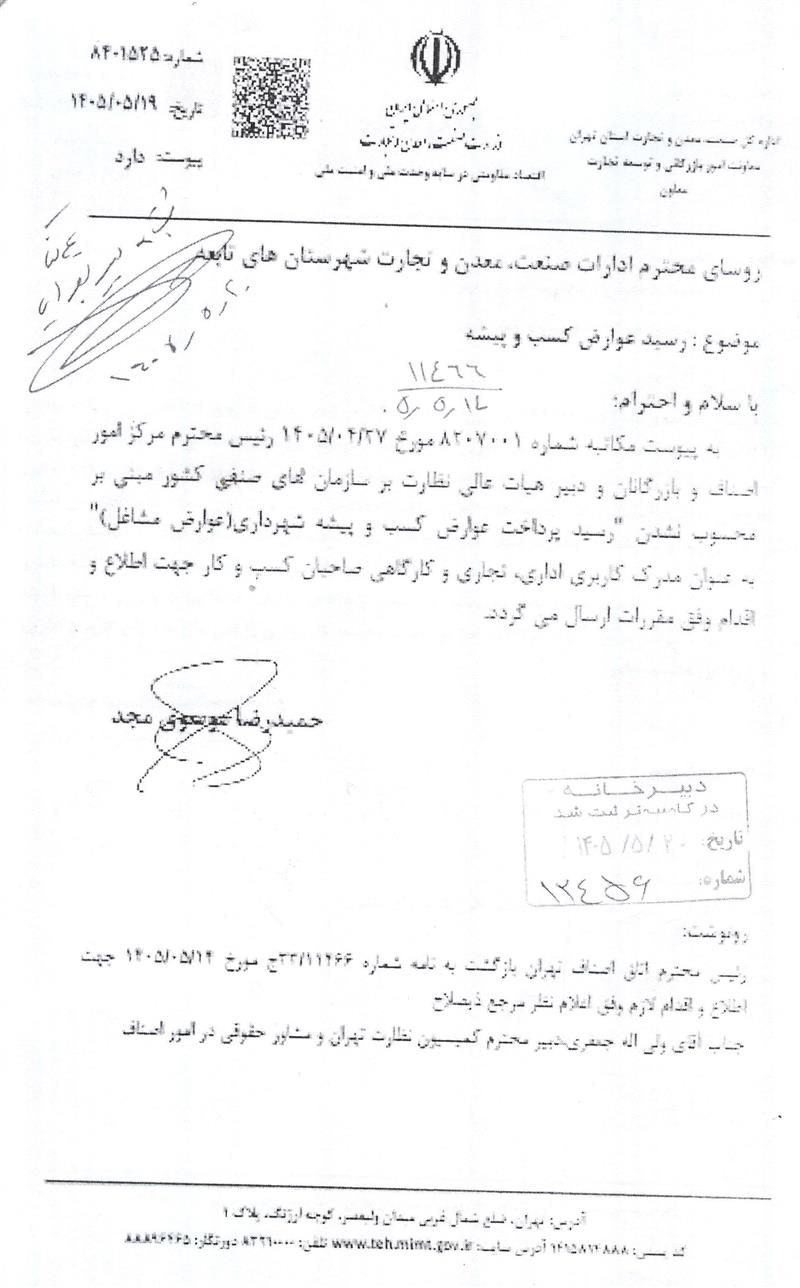 شماره: ۸۴۰۱۵۲۵
تاریخ: ۱۴۰۵/۰۵/۱۹
پیوست: دارد
جمهوری اسلامی ایران
وزارت صنعت، معدن و تجارت
اقتصاد مقاومتی در سایه وحدت ملی و امنیت ملی
اداره کل صنعت، معدن و تجارت استان تهران
معاونت امور بازرگانی و توسعه تجارت
معاون
روسای محترم ادارات صنعت، معدن و تجارت شهرستان های تابعه
موضوع : رسید عوارض کسب و پیشه
۱۱۴۶۶
۵٫۵٫۱۴
با سلام و احترام؛
به پیوست مکاتبه شماره ۸۲۰۷۰۰۱ مورخ ۱۴۰۵/۰۴/۲۷ رئیس محترم مرکز امور
اصناف و بازرگانان و دبیر هیات عالی نظارت بر سازمان های صنفی کشور مبنی بر
محسوب نشدن "رسید پرداخت عوارض کسب و پیشه شهرداری(عوارض مشاغل)"
به عنوان مدرک کاربری اداری، تجاری و کارگاهی صاحبان کسب و کار جهت اطلاع و
اقدام وفق مقررات ارسال می گردد.
حمیدرضا موسوی مجد
دبیرخانه
ثبت شد
تاریخ: ۱۴۰۵/۵/۲۰
شماره: ۱۲۴۵۶
رونوشت:
رئیس محترم اتاق اصناف تهران بازگشت به نامه شماره ۳۳/۱۱۴۶۶ج مورخ ۱۴۰۵/۰۵/۱۴ جهت
اطلاع و اقدام لازم وفق اعلام نظر مرجع ذیصلاح
جناب آقای ولی اله جمعری،دبیر محترم کمیسیون نظارت تهران و مشاور حقوقی در امور اصناف
آدرس: تهران، ضلع شمال غربی میدان ولیعصر، کوچه ارژنگ، پلاک ۱
کد پستی: ۱۴۱۵۸۷۴۸۸۸ آدرس سایت: www.teh.mimt.gov.ir تلفن: ۸۳۲۱۰۰۰۰ دورنگار: ۸۸۸۹۶۴۶۵